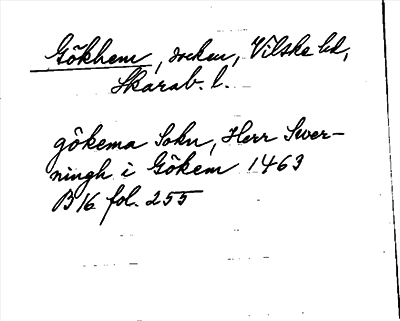 Gökhem, socken, Vilske hd,
Skarab. l.
gökema Sokn, Herr Swer-
ningh i Gökem 1463
B 16 fol. 255